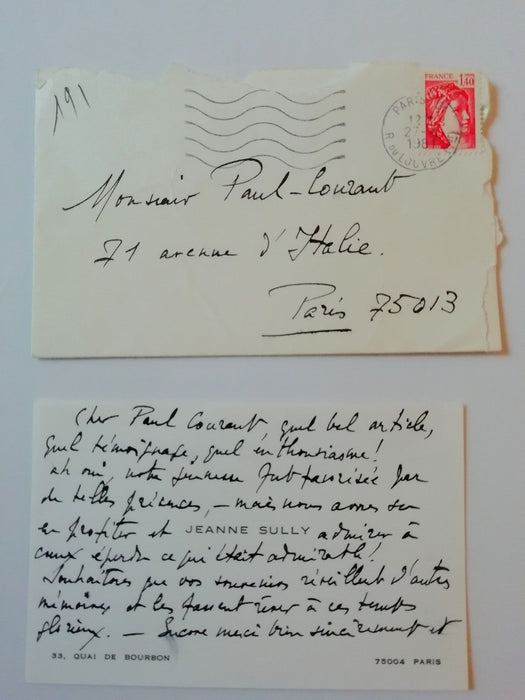 191
FRANCE
1,40
PARIS
27
1981
R. DU LOUVRE
Monsieur Paul-Courant
71 avenue d'Italie.
Paris 75013
Cher Paul Courant, quel bel article,
quel témoignage, quel enthousiasme!
ah oui, notre jeunesse fut favorisée par
de telles présences, — mais nous avons su
en profiter et JEANNE SULLY admirer à
ceux ce qui était admirable!
Souhaitons que vos souvenirs réveillent d'autres
mémoires et les fassent rêver à ces temps
glorieux. — Encore merci bien sincèrement et
33, QUAI DE BOURBON 75004 PARIS